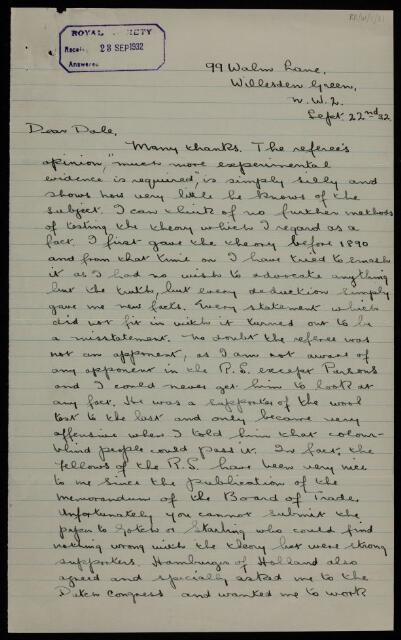 RR/W/1/21
ROYAL SOCIETY
Receiv. 28 SEP1932
Answered
99 Walm Lane,
Willesden Green,
N.W.2.
Sept. 22nd 32
Dear Dale,
Many thanks. The referee's
opinion, "much more experimental
evidence is required," is simply silly and
shows how very little he knows of the
subject. I can think of no further methods
of testing the theory which I regard as a
fact. I first gave the theory before 1890
and from that time on I have tried to smash
it as I had no wish to advocate anything
but the truth, but every deduction simply
gave me new facts. Every statement which
did not fit in with it turned out to be
a misstatement. No doubt the referee was
not an opponent, as I am not aware of
any opponent in the R.S. except Parsons
and I could never get him to look at
any fact. He was a supporter of the wool
test to the last and only became very
offensive when I told him that colour-
blind people could pass it. In fact, the
fellows of the R.S. have been very nice
to me since the publication of the
memorandum of the Board of Trade.
Unfortunately you cannot submit the
paper to Gotch or Starling who could find
nothing wrong with the theory but were strong
supporters. Hamburger of Holland also
agreed and specially asked me to the
Dutch Congress and wanted me to work